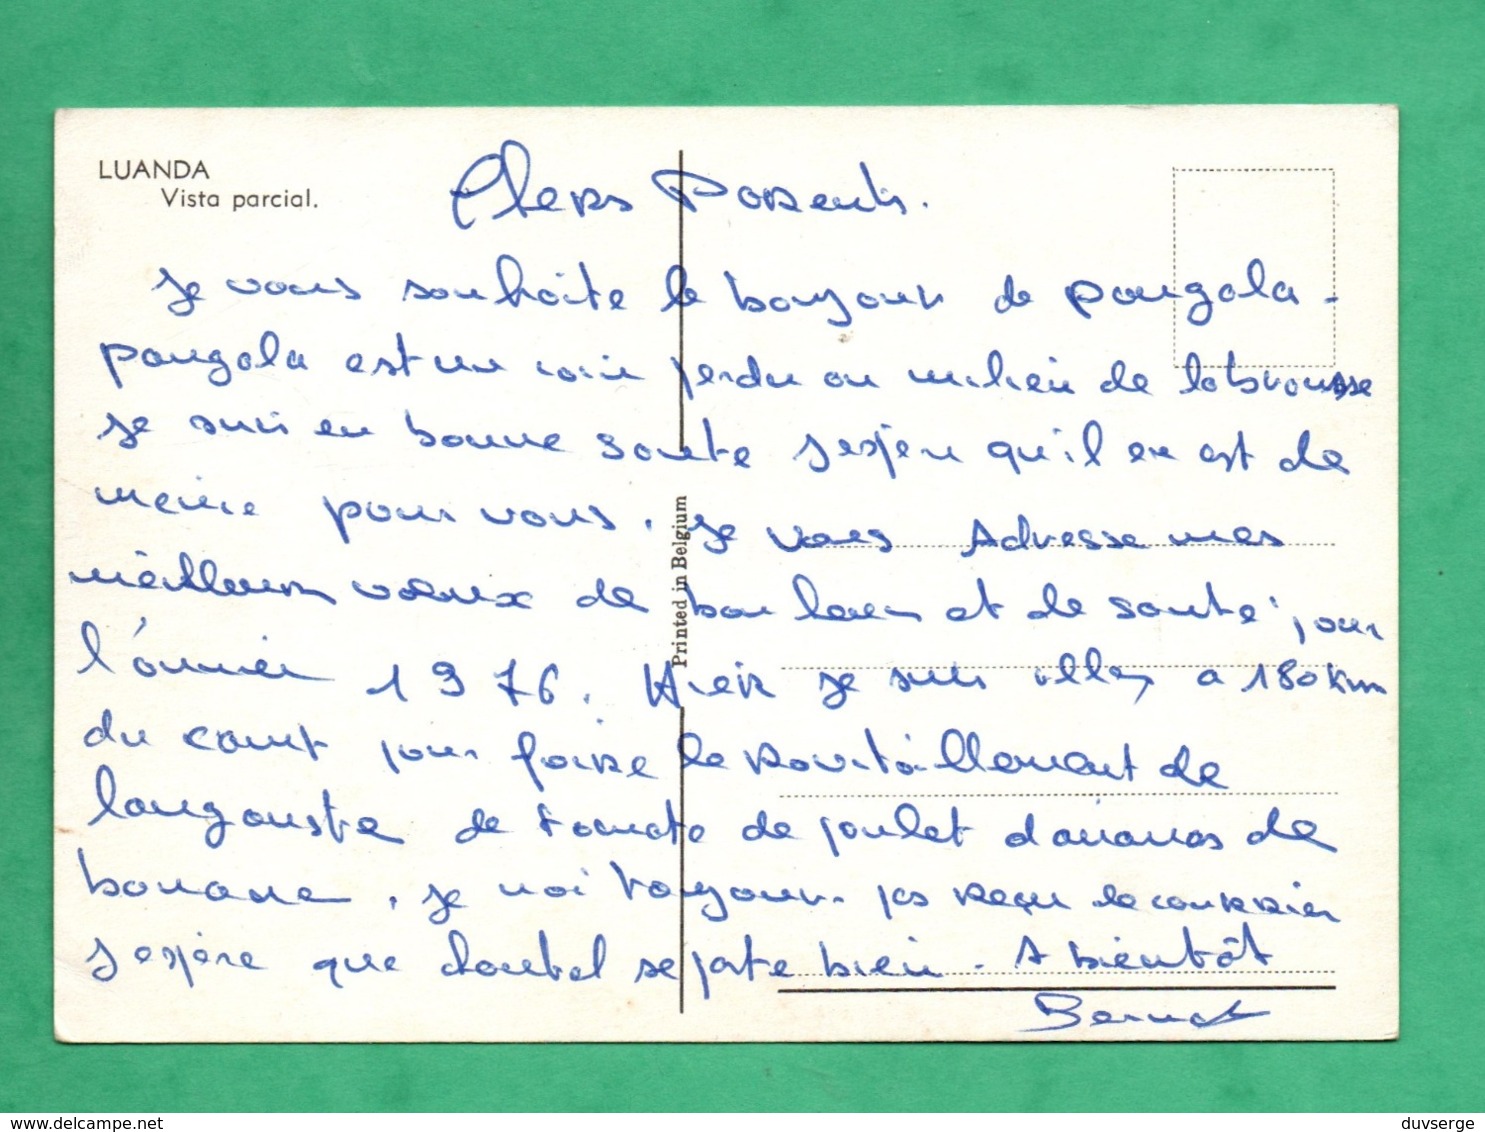 LUANDA
Vista parcial.
Chers Parents.
Je vous souhaite le bonjour de pangala -
pangala est un coin perdu au milieu de la brousse
je suis en bonne sante J'espere qu'il en est de
meme pour vous. je vous Adresse mes
meilleurs voeux de bonheur et de santé pour
l'année 1976. Hier je suis allez a 180 Km
du camp pour faire le ravitaillement de
langouste de tomate de poulet d'ananas de
banane. je n'ai toujours pas reçu le courrier
J'espère que se porte bien - A bientôt
Printed in Belgium
delcampe.net
duvserge